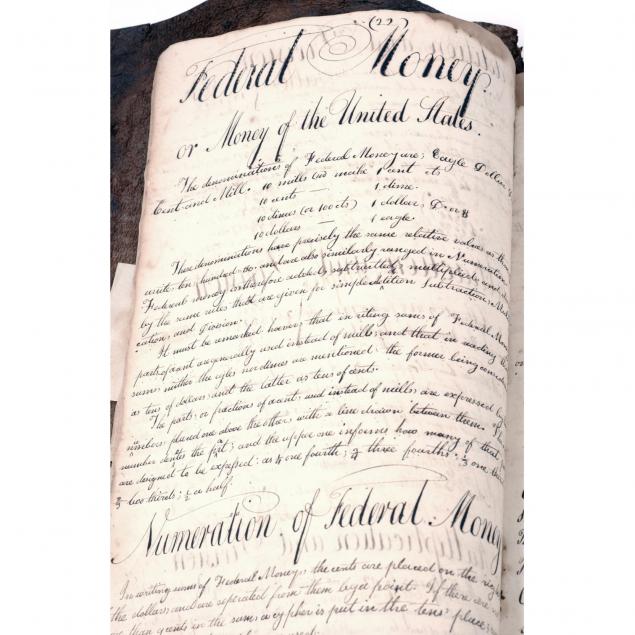 (22)
Federal Money
or Money of the United States.
The denominations of Federal Money are; Eagle Dollar
Cent and Mill. 10 mills (m) make 1 cent ct
10 cents — 1 dime.
10 dimes (or 100 cts) 1 dollar, D. or $
10 dollars — 1 eagle.
These denominations have precisely the same relative values as
units ten hundred &c. and are also similarly ranged in Numeration
Federal money is therefore added, subtracted, multiplied and
by the same rules that are given for simple addition Subtraction,
ication and Division.
It must be remarked however that in writing sums of Federal
parts of a cent are generally used instead of mills; and that in reading
sums neither the eagles nor dimes are mentioned: the former being
as tens of dollars and the latter as tens of cents.
The parts or fractions of a cent used instead of mills are expressed by
numbers placed one above the other, with a line drawn between them.
number denotes the part; and the upper one informs how many of that
are designed to be expressed: as ¼ one fourth; ¾ three fourths; ⅓ one third
⅔ two thirds; ½ a half
Numeration of Federal Money
In writing sums of Federal Money, the cents are placed on the
the dollars and are separated from them by a point. If there are
than ten cents in the sum, a cypher is put in the tens place;